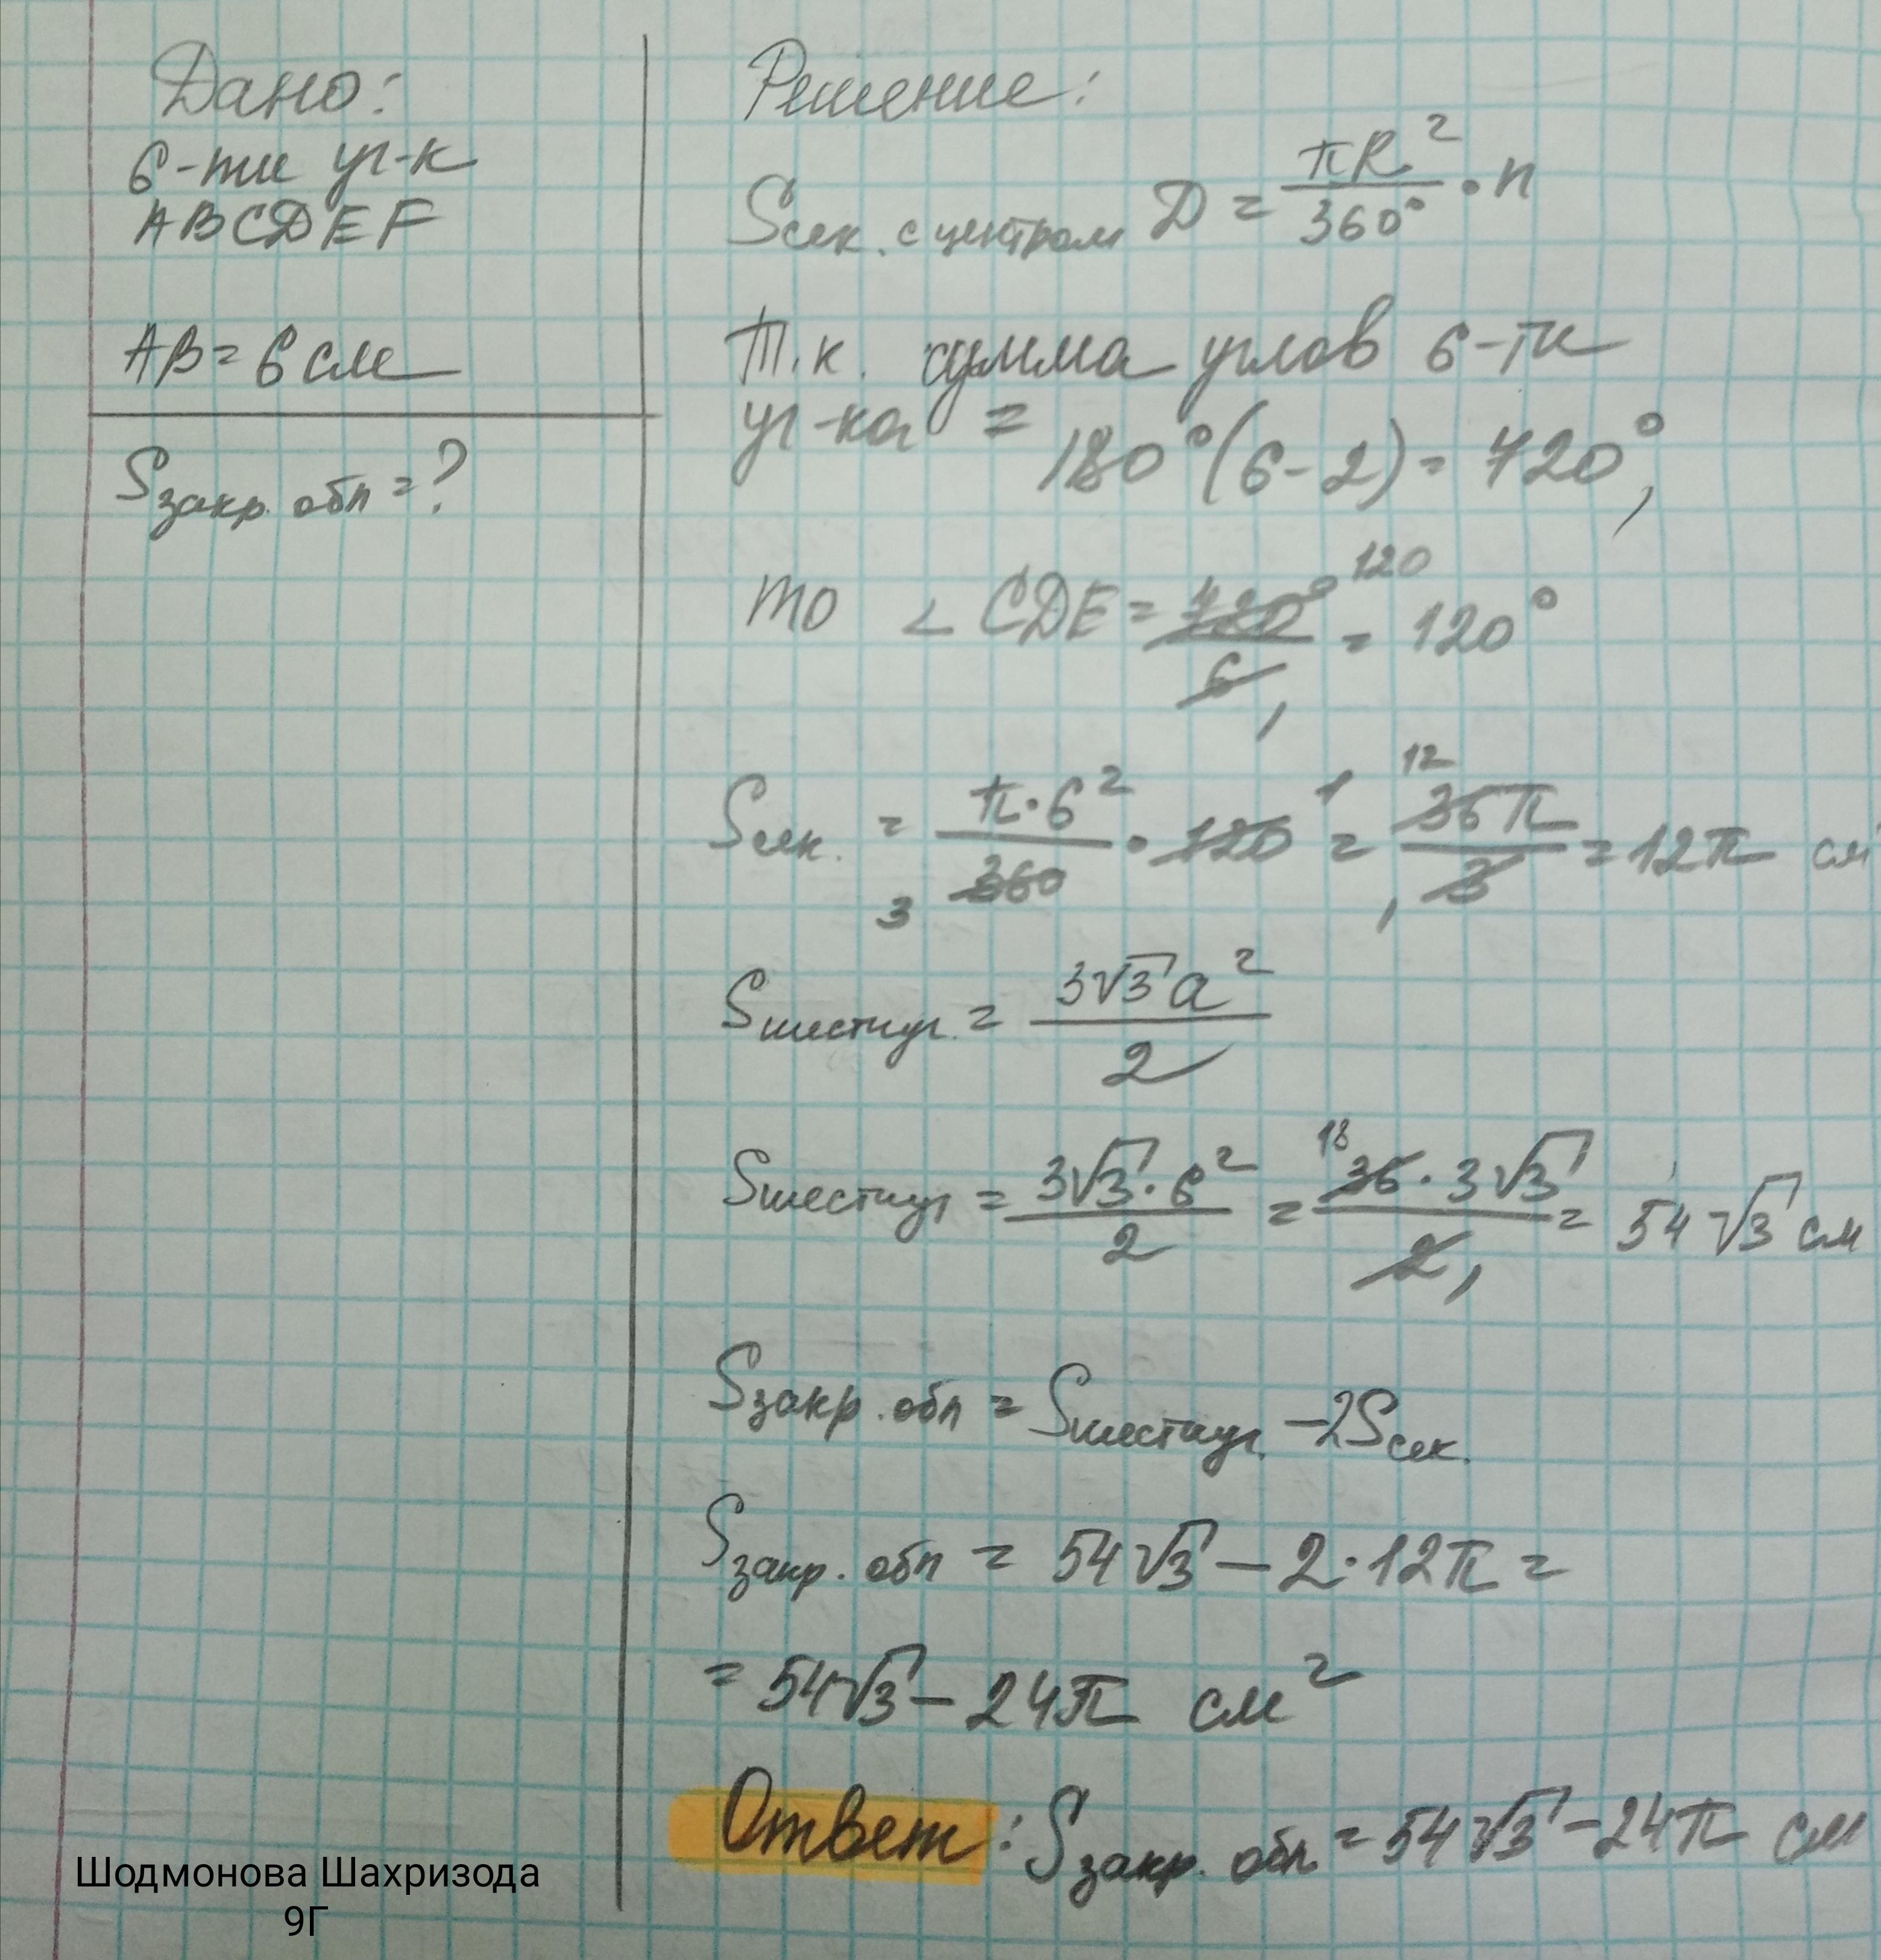 Дано:
6-ти уг-к
ABCDEF
AB = 6 см
Sзакр. обл = ?
Решение:
Sсек. с центром D = πR²/360° · n
Т.к. сумма углов 6-ти
уг-ка = 180°(6-2) = 720°,
то ∠CDE = 720°/6 = 120°
120
Sсек. = π·6²/360 · 120 = 36π/3 = 12π см
3 1 12
Sшестиуг. = 3√3a²/2
Sшестиуг = 3√3·6²/2 = 36·3√3/2 = 54√3 см
18
Sзакр. обл = Sшестиуг. - 2Sсек.
Sзакр. обл = 54√3 - 2·12π =
= 54√3 - 24π см²
Ответ: Sзакр. обл. = 54√3 - 24π см
Шодмонова Шахризода
9Г